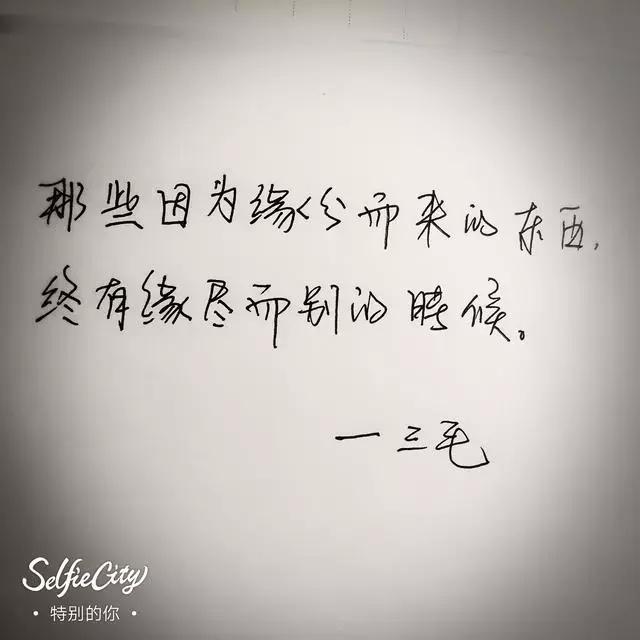 那些因为缘份而来的东西,
终有缘尽而别的时候。
一三毛
SelfieCity
· 特别的你 ·